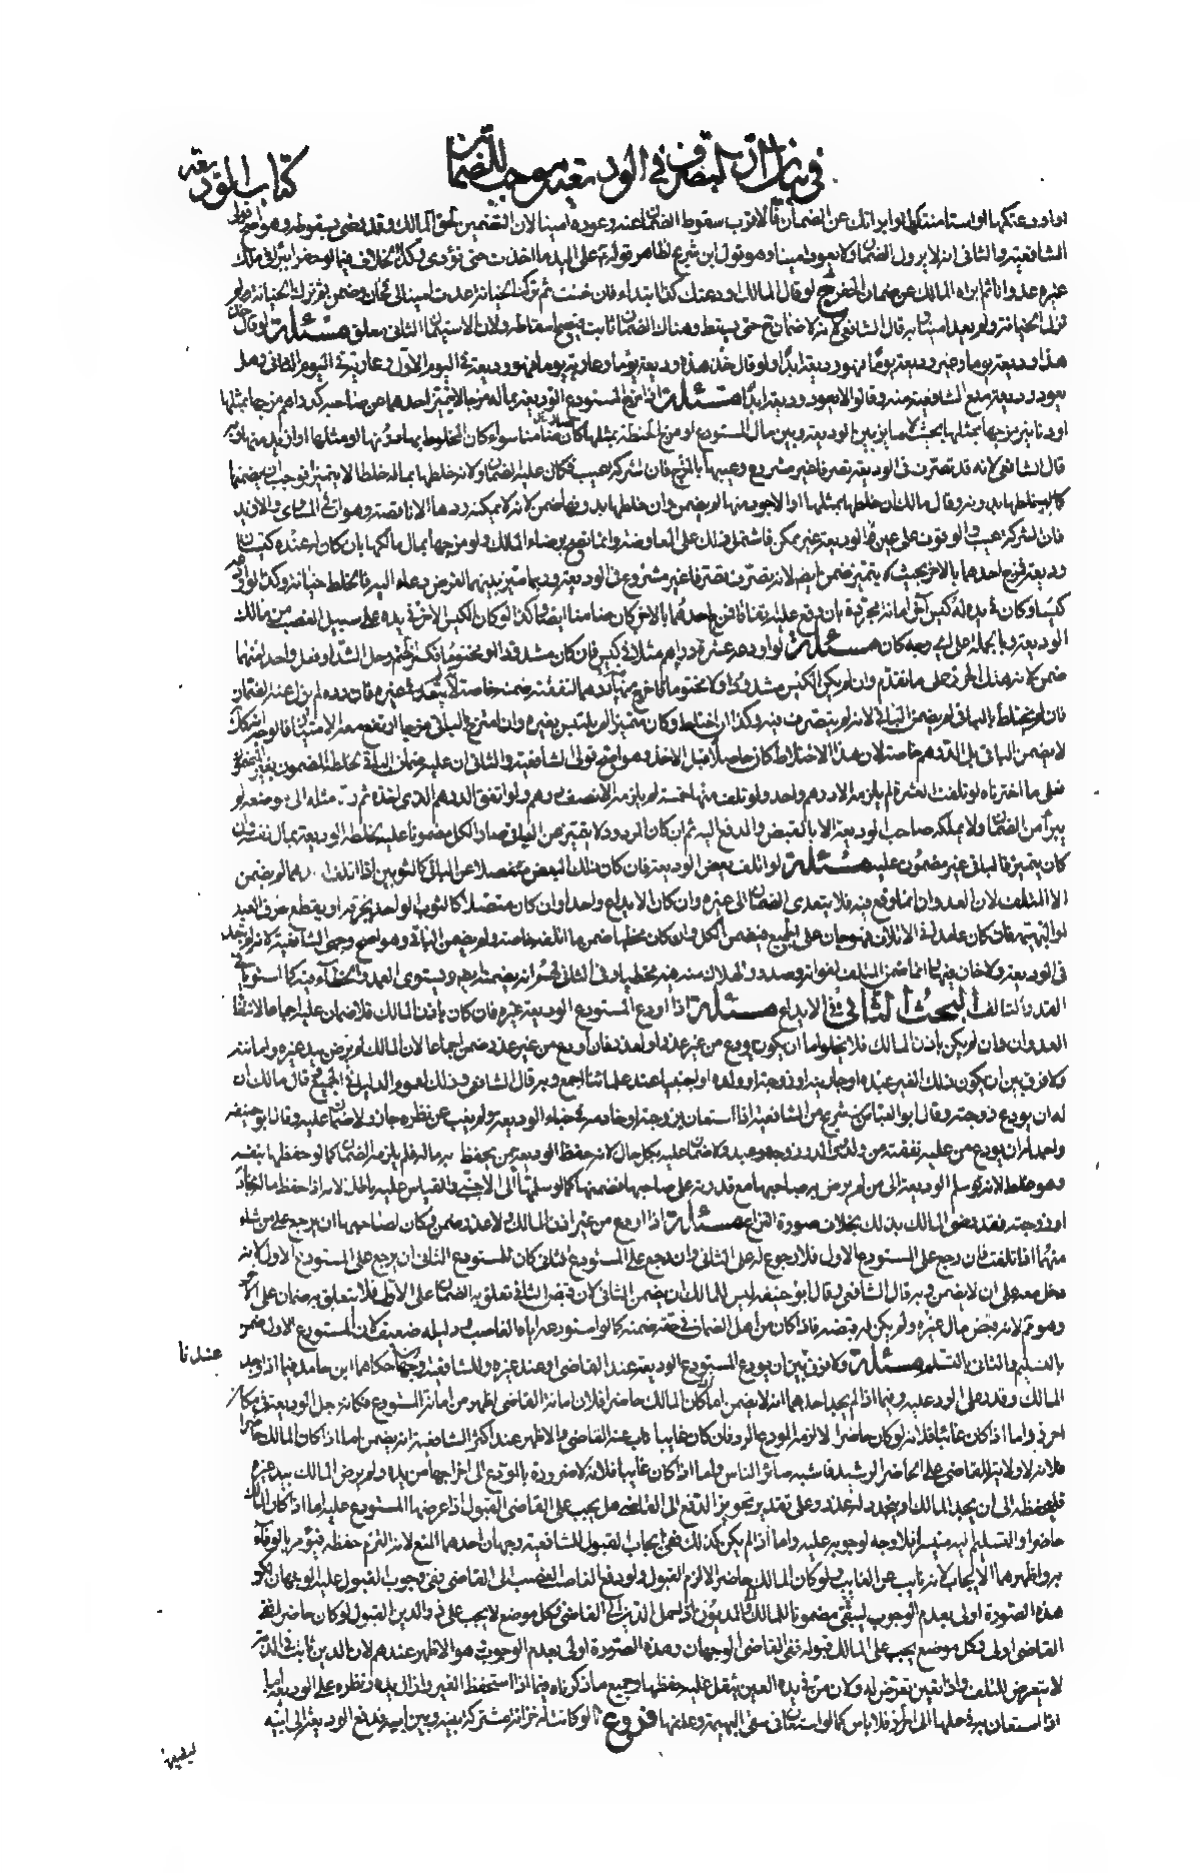 في بيان ان التصرف في الوديعة موجب للضمان كتاب الوديعة
او اودعتكها او استامنتكها او ابراتك عن الضمان فالاقرب سقوط الضمان عنه وعوده امينا لان التضمين لحق المالك وقد رضي بسقوطه وهو اصح قولي
الشافعية والثاني انه لا يزول الضمان ولا يعود امينا وهو قول ابن شريح لظاهر قوله على اليد ما اخذت حتى تؤدي وكذا الخلاف فيما لو حفر بئرا في ملك
غيره عدوانا ثم ابراه المالك عن ضمان الحفر ولو قال المالك اودعتك كذا ابتداء فان خنت ثم تركت الخيانة عدت امينا لي فخان وضمن ثم ترك الخيانة لم
يزل الضمان ولم يعد امينا وبه قال الشافعي لانه لا ضمان ح حتى يسقط وهناك الضمان ثابت فيصح اسقاطه ولان الاستيمان الثاني معلق مسئلة لو قال خذ
هذا وديعة يوما وغير وديعة يوما فهو وديعة ابدا ولو قال خذ هذا وديعة يوما وعارية يوما فهو وديعة في اليوم الاول وعارية في اليوم الثاني وهل
يعود وديعة منع الشافعية منه وقالوا لا يعود وديعة ابدا مسئلة اذا مزج المستودع الوديعة بماله مزجا لا يتميز احدهما عن صاحبه كدراهم مزجها بمثلها
او دنانير مزجها بمثلها بحيث لا مايز بين الوديعة وبين مال المستودع او مزج الحنطة بمثلها كان ضامنا سواء كان المخلوط بها دونها او مثلها او ازيد منها وبه
قال الشافعي لانه قد تصرف في الوديعة تصرفا غير مشروع وعيبها بالمزج فان الشركة عيب فكان عليه الضمان ولانه خلطها بماله خلطا لا يتميز فوجب ان يضمنها
كما لو خلطها بدونه وقال مالك ان خلطها بمثلها او الاجود منها لم يضمن وان خلطها بدونها ضمن لانه لا يمكنه ردها الا ناقصة وهو ات في المساوي والازيد
فان الشركة عيب والوقوف على عين الوديعة غير ممكن فاشتمل ذلك على المعاوضة وانما تصح برضاء المالك ولو مزجها بمال مالكها بان كان له عنده كيسان
وديعة فمزج احدهما بالاخر بحيث لا يتميز ضمن ايضا لانه تصرف تصرفا غير مشروع في الوديعة وربما ميز بينهما لغرض دعاه اليه فالخلط خيانة وكذا لو اودعه
كيسا وكان في يده له كيس اخر امانة مجردة بان وقع عليه بقاء فمزج احدهما بالاخر كان ضامنا ايضا وكذا لو كان الكيس الاخر في يده على سبيل الغصب من مالك
الوديعة وبالجملة على اي وجه كان مسئلة لو اودعه عشرة دراهم مثلا في كيس فان كان مشدودا او مختوما فكسر ختمه وحل الشد او فعل واحدا منهما
ضمن لانه هتك الحرز على ما تقدم وان لم يكن الكيس مشدودا ولا مختوما فاخرج منها درهما لنفقته ضمنه خاصة لانه لم يتعد في غيره فان رده لم يزل عنه الضمان
فان لم يختلط بالباقي لم يضمن الباقي لانه لم يتصرف فيه وكذا ان اختلط وكان متميزا لم يلتبس بغيره وان امتزج بالباقي مزجا ارتفع معه الامتياز فالوجه انه كذلك
لا يضمن الباقي بل الدرهم خاصة لان هذا الاختلاط كان حاصلا قبل الاخذ وهو اصح قولي الشافعية والثاني ان عليه ضمان الباقي لخلطه المضمون بغير المضمون
فعلى ما اخترناه لو تلفت العشرة لم يلزمه الا درهم واحد ولو تلف منها خمسة لم يلزمه الا نصف درهم ولو انفق الدرهم الذي اخذه ثم رد مثله الى موضعه لم
يبرأ من الضمان ولا يملكه صاحب الوديعة الا بالقبض والدفع اليه ثم ان كان المردود لا يتميز عن الباقي صار الكل مضمونا عليه لخلطه الوديعة بمال نفسه وان
كان يتميز فالباقي غير مضمون عليه مسئلة لو اتلف بعض الوديعة فان كان ذلك البعض منفصلا عن الباقي كالثوبين اذا اتلف احدهما لم يضمن
الا المتلف لان العدوان انما وقع فيه فلا يتعدى الضمان الى غيره وان كان الايداع واحدا وان كان متصلا كالثوب الواحد يخرقه او يقطع طرف العبد
او البهيمة فان كان عامدا في الاتلاف فهو جان على الجميع فيضمن الكل وان كان مخطئا ضمن ما اتلفه خاصة ولم يضمن الباقي وهو اصح وجهي الشافعية لانه لم يتعد
في الوديعة ولا خان فيها وانما ضمن المتلف لفواته وصدور الهلاك منه فيه مخطئا وفي الثاني لهم انه يضمنه ايضا ويستوي العمد والخطاء فيه كما استويا في
القدر التالف البحث الثاني في الايداع مسئلة اذا اودع المستودع الوديعة غيره فان كان باذن المالك فلا ضمان عليه اجماعا لانتفاء
العدوان وان لم يكن باذن المالك فلا يخلوا اما ان يكون يودع من غير عذر او لعذر فان اودع من غير عذر ضمن اجماعا لان المالك لم يرض بيد غيره وامانته
ولا فرق بين ان يكون ذلك الغير عبده او جاريته او زوجته او ولده او اجنبيا عند علمائنا اجمع وبه قال الشافعي وذلك لعموم الدليل في الجميع وقال مالك ان
له ان يودع زوجته وقال ابو العباس بن شريح من الشافعية اذا استعان بزوجته او خادمه في خباء الوديعة ولم يغب عن نظره جاز ولا ضمان عليه وقال ابو حنيفة
واحمد له ان يودع من عليه نفقته من ولد ووالد وزوجة وعبد ولا ضمان عليه بكل حال لانه حفظ الوديعة بمن يحفظ به ماله فلم يلزمه الضمان كما لو حفظها بنفسه
وهو غلط لانه سلم الوديعة الى من لم يرض به صاحبها مع قدرته على صاحبها فضمنها كما لو سلمها الى الاجنبي والقياس عليه باطل لانه اذا حفظ ماله بجاره
او زوجته فقد رضي المالك بذلك بخلاف صورة النزاع مسئلة اذا اودع من غير اذن المالك ولا عذر ضمن فكان لصاحبها ان يرجع على من شاء
منهما اذا تلفت فان رجع على المستودع الاول فلا رجوع له على الثاني وان رجع على المستودع الثاني كان للمستودع الثاني ان يرجع على المستودع الاول لانه
دخل معه على ان لا يضمن وبه قال الشافعي وقال ابو حنيفة ليس للمالك ان يضمن الثاني لان قبض الثاني تعلق به الضمان على الاول فلا يتعلق به ضمان على الاخر
وهو ثم لانه قبض مال غيره ولم يكن له قبضه فاذا كان من اهل الضمان في حقه ضمنه كما لو استودعه اياه الغاصب ودليله ضعيف لان المستودع الاول ضمن
بالتسليم والثاني بالتسلم مسئلة ولا فرق بين ان يودع المستودع الوديعة عند القاضي او عند غيره وللشافعية وجهان حكاهما ابن حامد فيما اذا وجد عندنا
المالك وقدر على الرد عليه وفيما اذا لم يجد احدهما انه لا يضمن اما اذا كان المالك حاضرا فلان امانة القاضي اظهر من امانة المستودع فكانه جعل الوديعة في مكان
احرز واما اذا كان غائبا فلانه لو كان حاضرا لالزمه المودع الرد فان كان غائبا ناب عنه القاضي والاظهر عند اكثر الشافعية انه يضمن اما اذا كان المالك حاضرا
فلانه لا ولاية للقاضي على الحاضر الرشيد فاشبه سائر الناس واما اذا كان غايبا فلانه لا ضرورة بالمودع الى اخراجها من يده ولم يرض المالك بيد غيره
فليحفظه الى ان يجد المالك او يتجدد له عذر وعلى تقدير تجويز الدفع الى القاضي هل يجب على القاضي القبول اذا عرضها المستودع عليه اما اذا كان المالك
حاضرا والتسليم اليه متيسرا فلا وجه لوجوبه عليه واما اذا لم يكن كذلك ففي ايجاب القبول للشافعية وجهان احدهما المنع لانه التزم حفظه فيؤمر بالوفاء
به واظهرهما الايجاب لانه نايب عن الغايب ولو كان المالك حاضرا لالزم القبول ولو دفع الغاصب الغصب الى القاضي ففي وجوب القبول عليه الوجهان لكن
هذه الصورة اولى بعدم الوجوب ليبقى مضمونا للمالك والمديون اذا حمل الدين الى القاضي فكل موضع لا يجب على ذي الدين القبول لو كان حاضرا ففي
القاضي اولى وكل موضع يجب على المالك قبوله ففي القاضي الوجهان وهذه الصورة اولى بعدم الوجوب وهو الاظهر عندهم لان الدين ثابت في الذمة
لا يتعرض للتلف واذا تعين تعرض له ولان من في يده العين يثقل عليه حفظها وجميع ما ذكرناه فيما اذا استحفظ الغير وازال يده ونظره على الوديعة اما
اذا استعان به في حملها الى الحرز فلا باس كما لو استعان في سقي البهيمة وعلفها فروع ا لو كانت له خزانة مشتركة بينه وبين ابنه فدفع الوديعة الى ابنه
ليضعها